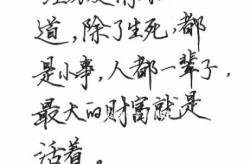 道,除了生死,都
是小事,人都一辈子,
最大的财富就是
活着。